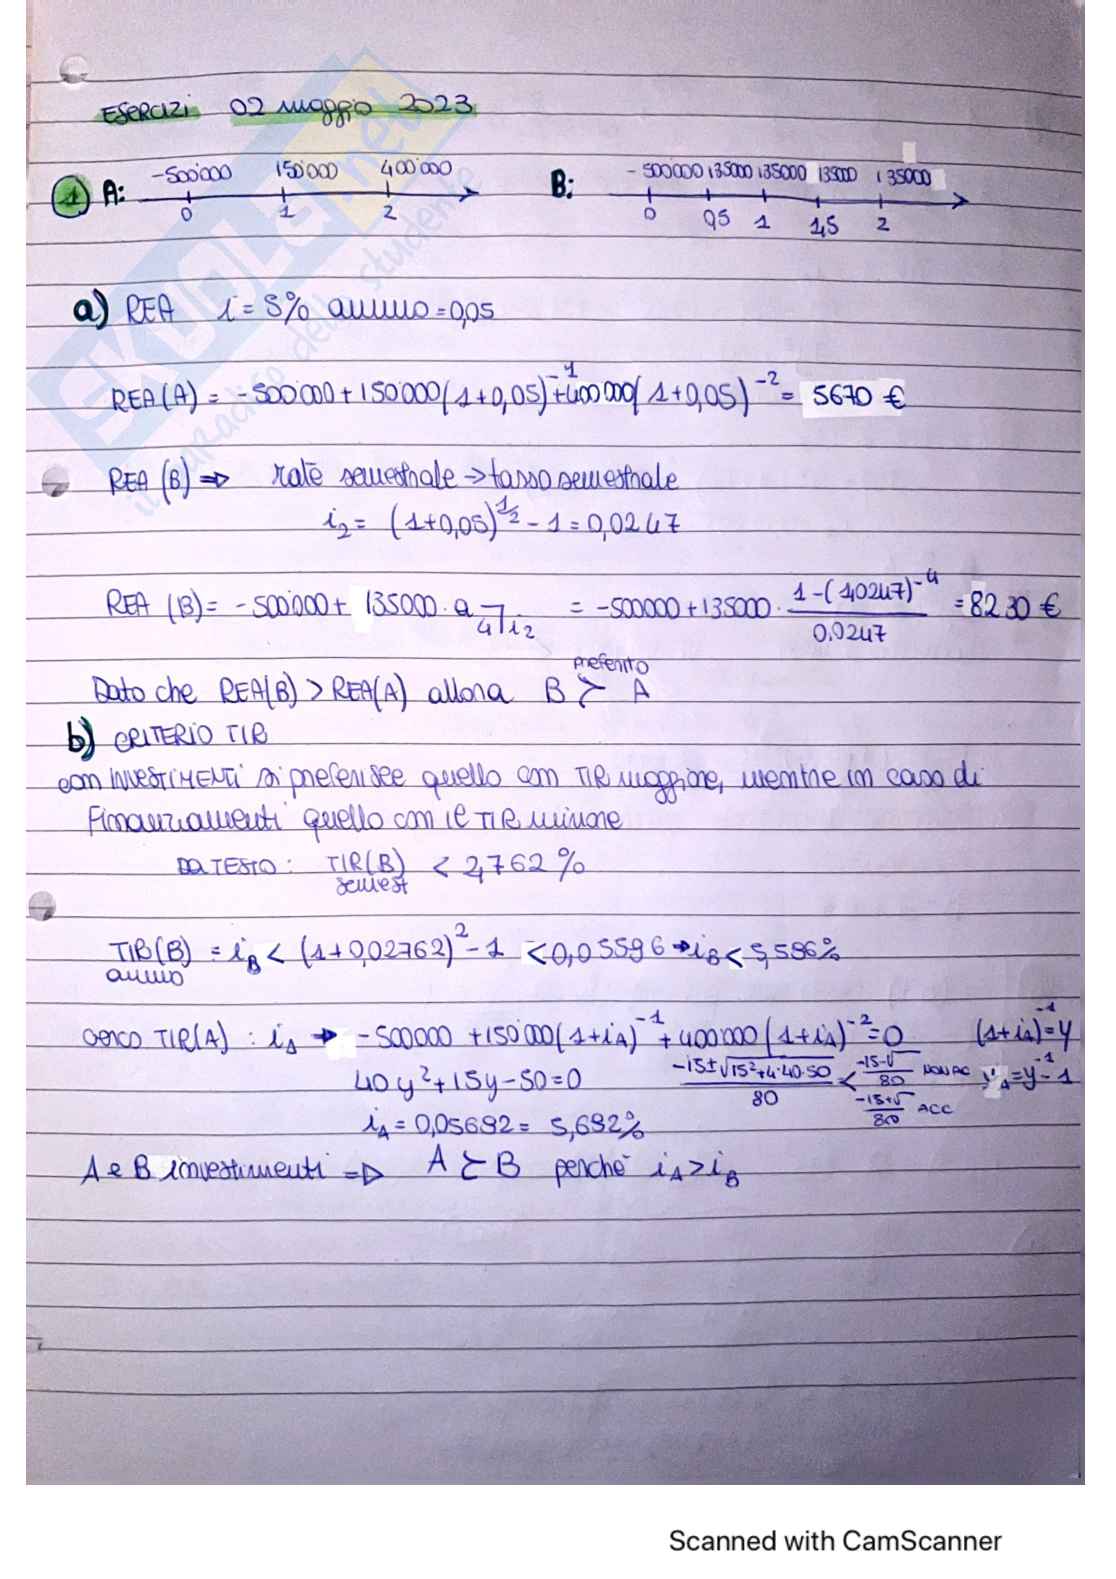 ESERCIZI 02 maggio 2023
1 A: -500'000 150'000 400'000
0 1 2
B: -500'000 135000 135000 135000 135000
0 0,5 1 1,5 2
a) REA i = 5% annuo = 0,05
REA(A) = -500'000 + 150'000(1+0,05)^-1 + 400'000(1+0,05)^-2 = 5670 €
REA (B) => rate semestrale → tasso semestrale
i2 = (1+0,05)^1/2 - 1 = 0,0247
REA (B) = -500'000 + 135000 · a 4⌉i2 = -500000 + 135000 · 1-(1,0247)^-4 / 0,0247 = 8230 €
Dato che REA(B) > REA(A) allora B ≻ A
preferito
b) CRITERIO TIR
con INVESTIMENTI si preferisce quello con TIR maggiore, mentre in caso di
Finanziamenti quello con il TIR minore
DA TESTO: TIR(B) < 2,762%
semest
TIR(B) = iB < (1+0,02762)^2 - 1 < 0,05596 → iB < 5,596%
annuo
Cerco TIR(A): iA → -500000 + 150'000(1+iA)^-1 + 400000(1+iA)^-2 = 0 (1+iA)^-1 = y
40y^2 + 15y - 50 = 0 -15±√15^2+4·40·50 / 80 < -15-√ / 80 NON AC iA = y^-1 - 1
-15+√ / 80 ACC
iA = 0,05692 = 5,692%
A e B investimenti => A ≻ B perché iA > iB
SKUOLA.net
il paradiso dello studente
Scanned with CamScanner